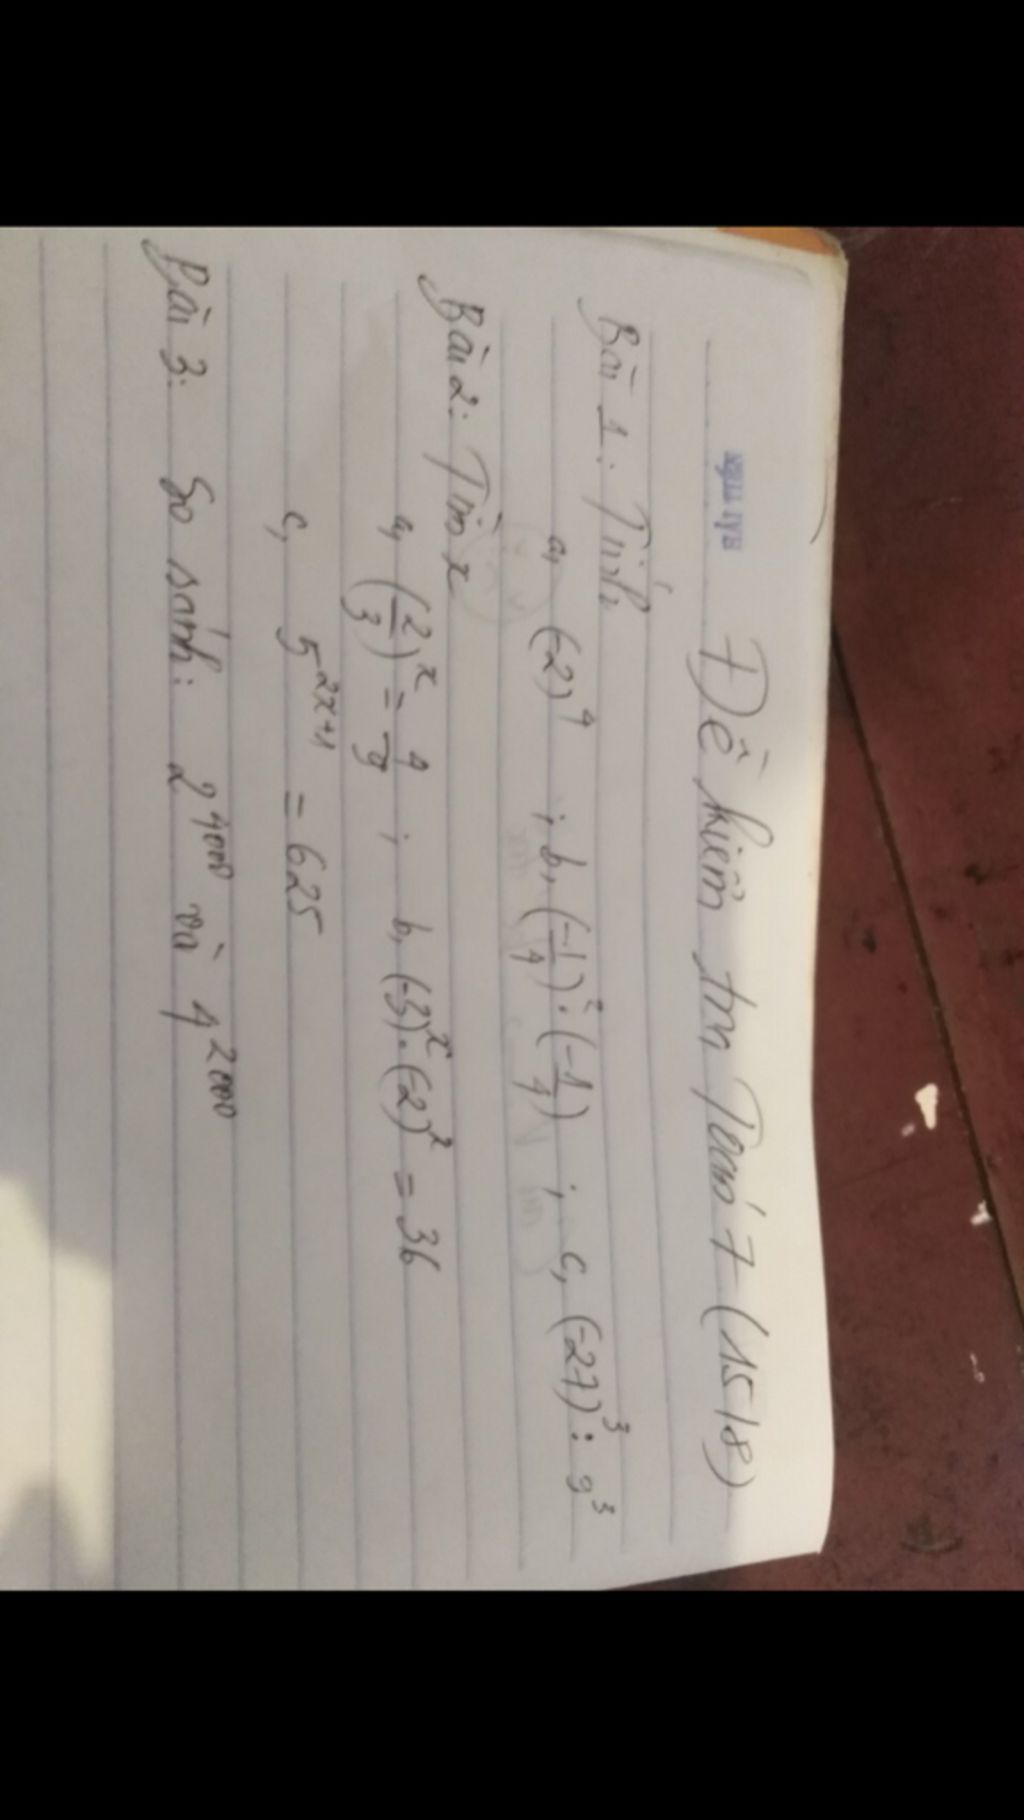 Đề kiểm tra Toán 7 (15/8)
Bài 1: Tính
a, (-2)⁴ ; b, (-1/4)² · (-1/4) ; c, (-27)³ : 9³
Bài 2: Tìm x
a, (2/3)ˣ = 4/9 ; b, (-3)ˣ · (-2)² = 36
c, 5²ˣ⁺¹ = 625
Bài 3: So sánh: 2⁴⁰⁰⁰ và 4²⁰⁰⁰